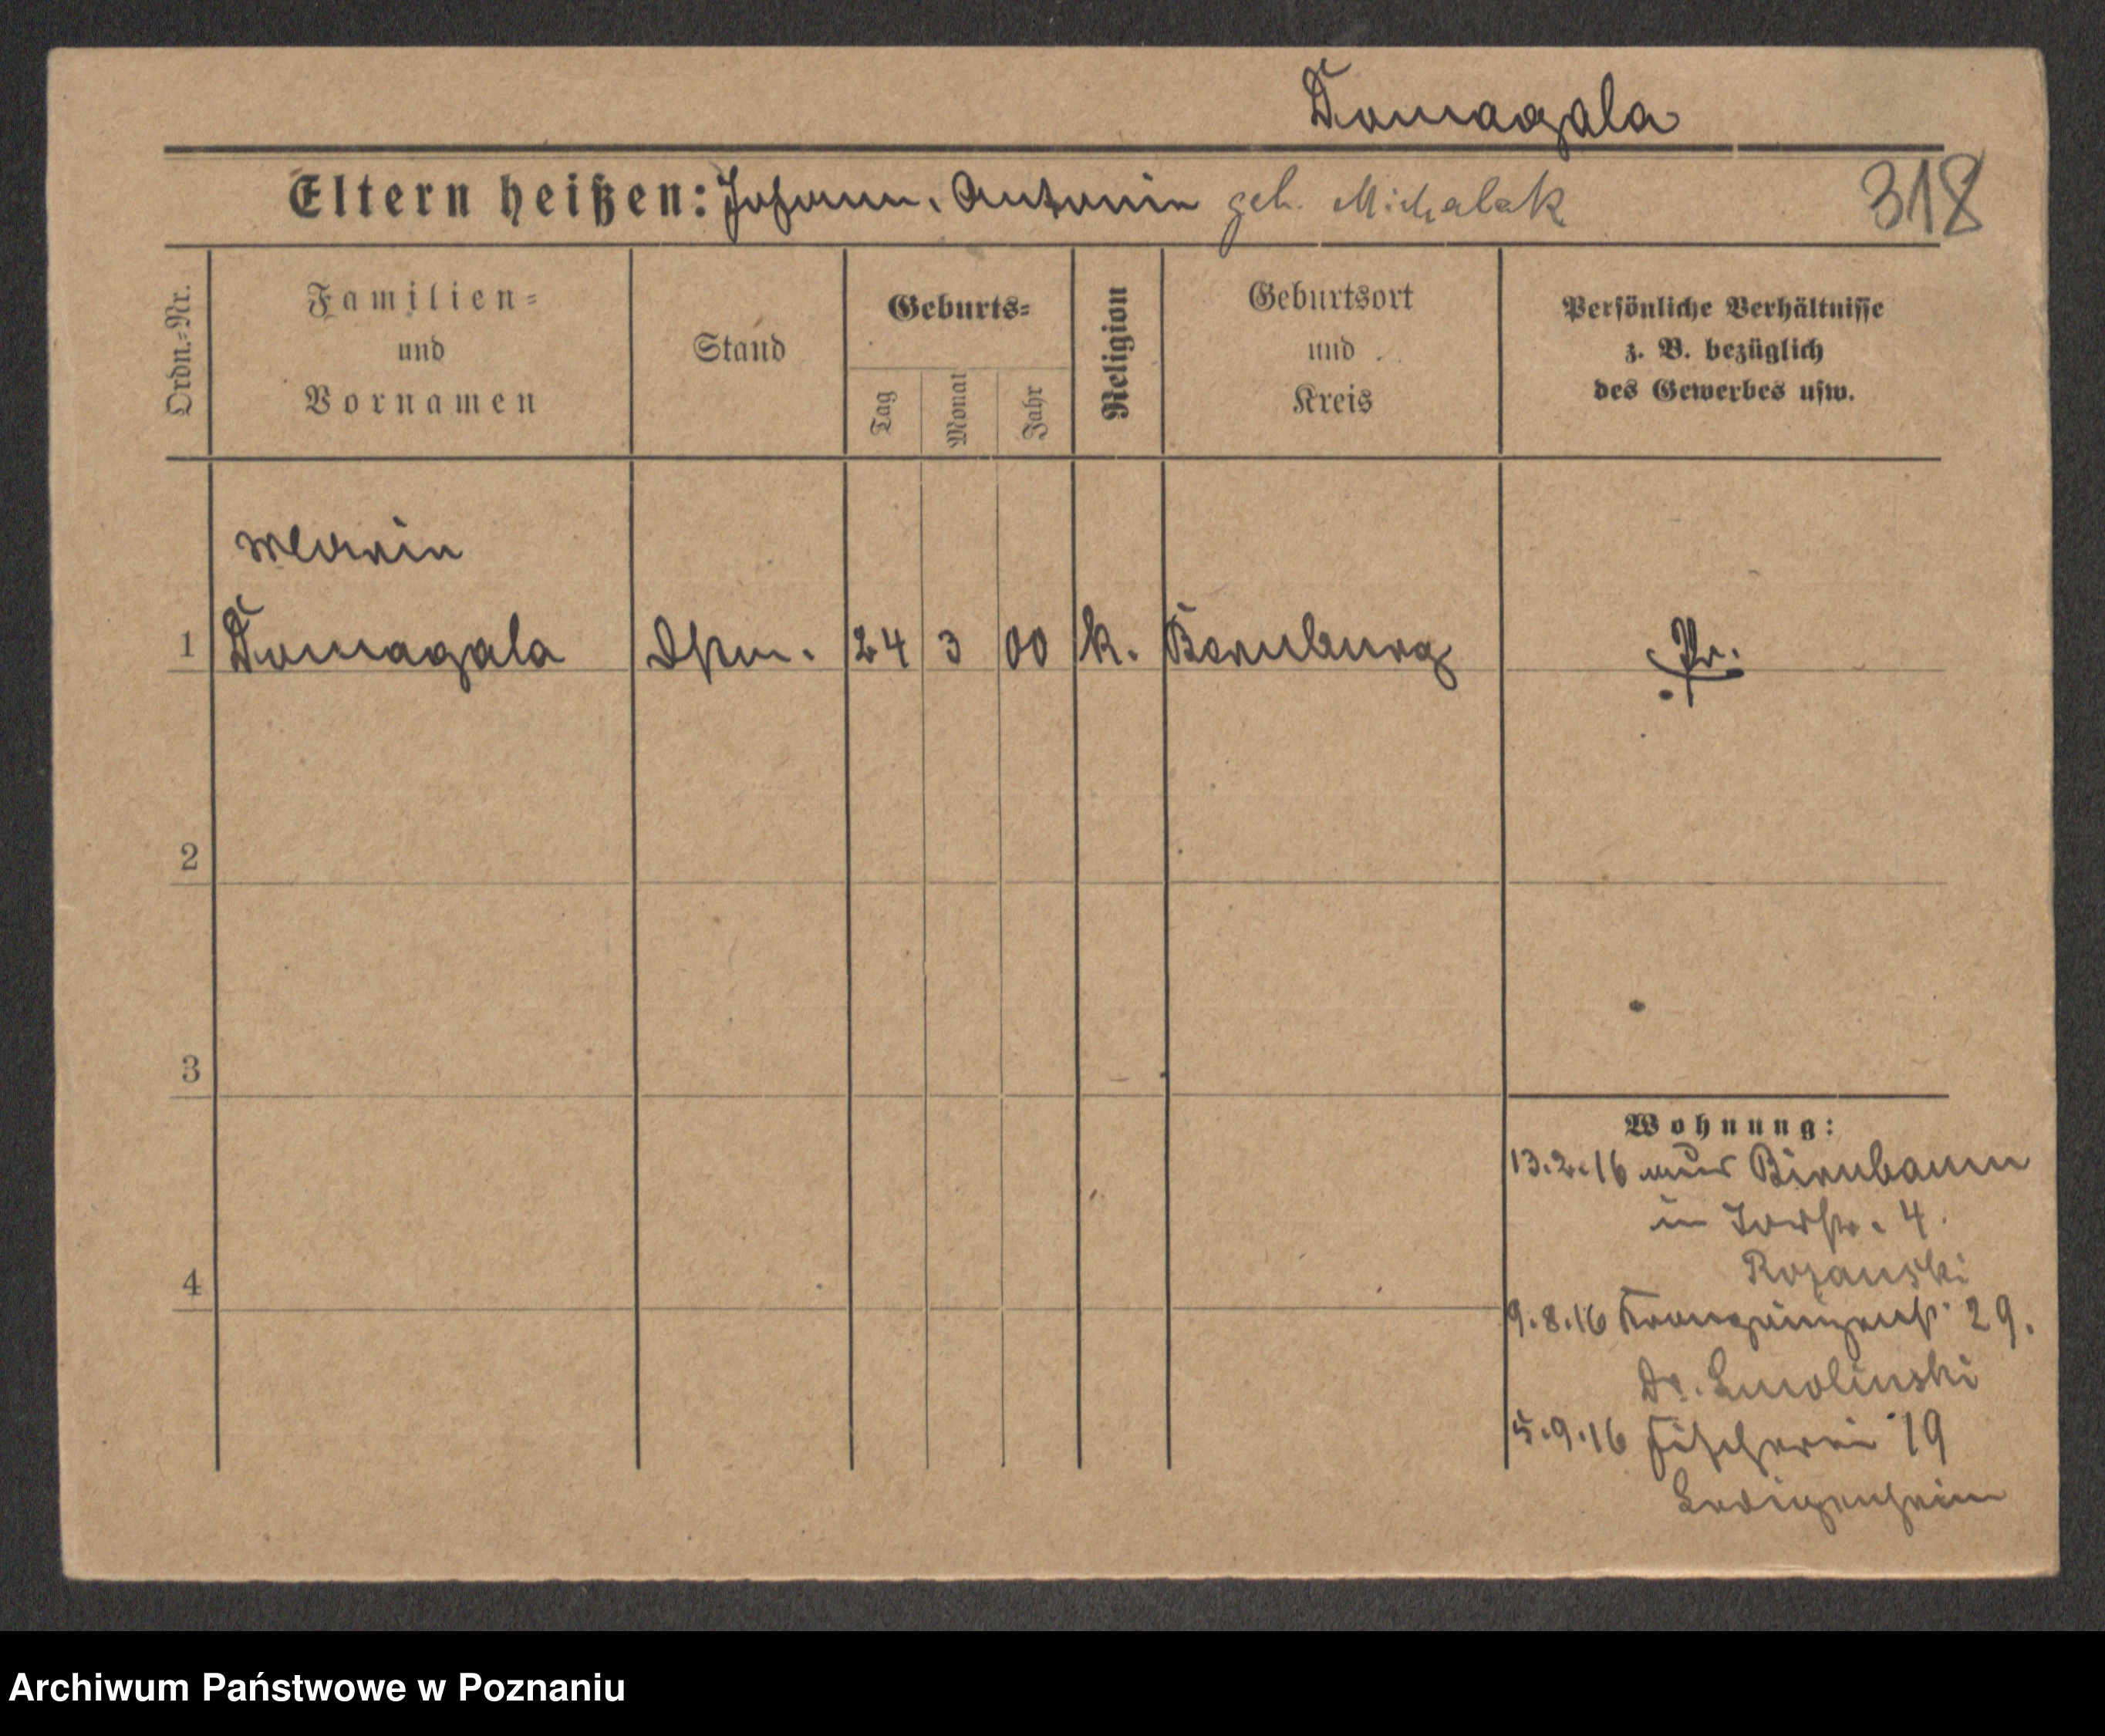 Domagala
Eltern heißen: Johann, Antonie geb. Michalak 318
Ordn.=Nr.
Familien=
und
Vornamen
Stand
Geburts=
Tag
Monat
Jahr
Religion
Geburtsort
und
Kreis
Persönliche Verhältnisse
z. B. bezüglich
des Gewerbes usw.
Marie
1 Domagala Dstm. 24 3 00 k. Bernburg Pr.
2
3
4
Wohnung:
13.2.16 aus Birnbaum
in Torstr. 4
Rozanski
9.8.16 Kronprinzenst. 29.
Dr. Smolinski
5.9.16 Fischerei 19
Ledigenheim
Archiwum Państwowe w Poznaniu